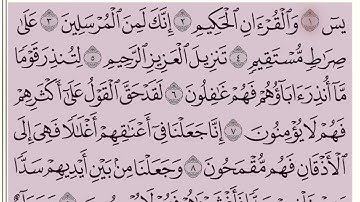 يسٓ ١ وَٱلْقُرْءَانِ ٱلْحَكِيمِ ٢ إِنَّكَ لَمِنَ ٱلْمُرْسَلِينَ ٣ عَلَىٰ
صِرَٰطٍ مُّسْتَقِيمٍ ٤ تَنزِيلَ ٱلْعَزِيزِ ٱلرَّحِيمِ ٥ لِتُنذِرَ قَوْمًا
مَّآ أُنذِرَ ءَابَآؤُهُمْ فَهُمْ غَٰفِلُونَ ٦ لَقَدْ حَقَّ ٱلْقَوْلُ عَلَىٰٓ أَكْثَرِهِمْ
فَهُمْ لَا يُؤْمِنُونَ ٧ إِنَّا جَعَلْنَا فِىٓ أَعْنَٰقِهِمْ أَغْلَٰلًا فَهِىَ إِلَى
ٱلْأَذْقَانِ فَهُم مُّقْمَحُونَ ٨ وَجَعَلْنَا مِنۢ بَيْنِ أَيْدِيهِمْ سَدًّا